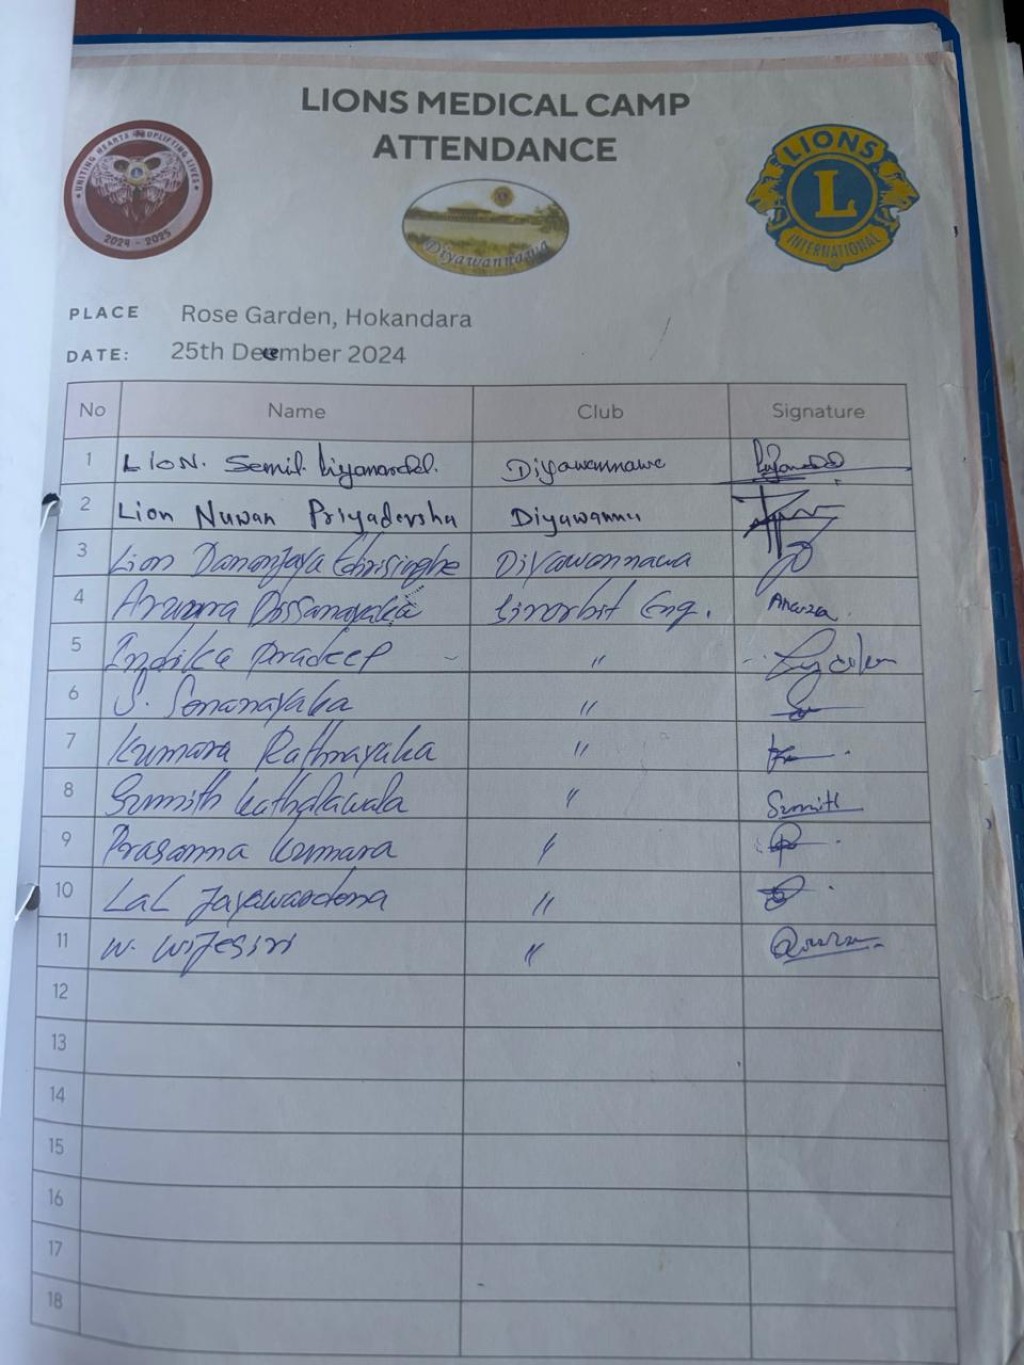 LIONS MEDICAL CAMP
ATTENDANCE
UNITING HEARTS UPLIFTING LIVES
2024 - 2025
Diyawannawa
LIONS
L
INTERNATIONAL
PLACE Rose Garden, Hokandara
DATE: 25th December 2024
No Name Club Signature
1 LION. Semil Diyawannawa
2 Lion Nuwan Priyadersha Diyawannu
3 Lion Dananjaya Diyawannawa
4 Aruna Dissanayaka Eng. Aruna
5 Indika Pradeep - "
6 S. Senanayaka "
7 Kumara Rathnayaka "
8 Sumith Kathalawala " Sumith
9 Prasanna Kumara "
10 LaL Jayawardena "
11 W. Wijesiri "
12
13
14
15
16
17
18